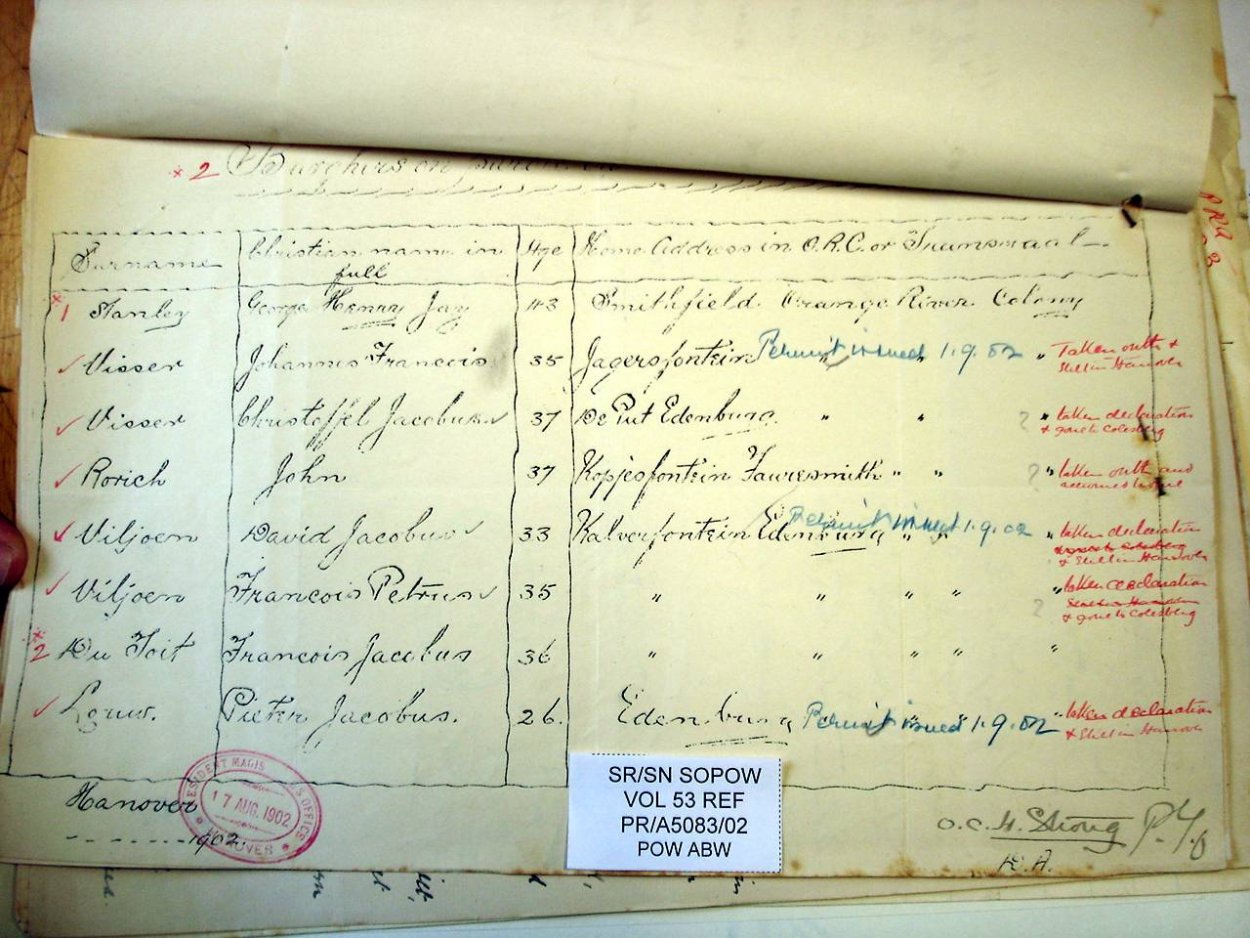 x 2 Burghers on
Surname Christian name in full Age Home Address in O.R.C. or Transvaal
x 1 Stanley George Henry Jay 43 Smithfield Orange River Colony
✓ Visser Johannes Francois 35 Jagersfontein " " " Permit issued 1.9.02 Taken oath & still in Hanover
✓ Visser Christoffel Jacobus ✓ 37 De Put Edenburg " " ? " taken declaration & gone to Colesberg
✓ Rorich John 37 Kopjesfontein Fauresmith " " ? " taken oath and
✓ Viljoen David Jacobus ✓ 33 Kalverfontein Edenburg " " " Permit issued 1.9.02 taken declaration & still in Hanover
✓ Viljoen Francois Petrus ✓ 35 " " " " ? " taken declaration still in Hanover & gone to Colesberg
x 2 Du Toit Francois Jacobus 36 " " " " "
✓ Louw. Pieter Jacobus. 26. Edenburg " " " Permit issued 1.9.02 taken declaration & still in Hanover
Hanover
1902.
RESIDENT MAGISTRATE'S OFFICE
17 AUG. 1902
HANOVER
SR/SN SOPOW
VOL 53 REF
PR/A5083/02
POW ABW
O.C.H. Strong